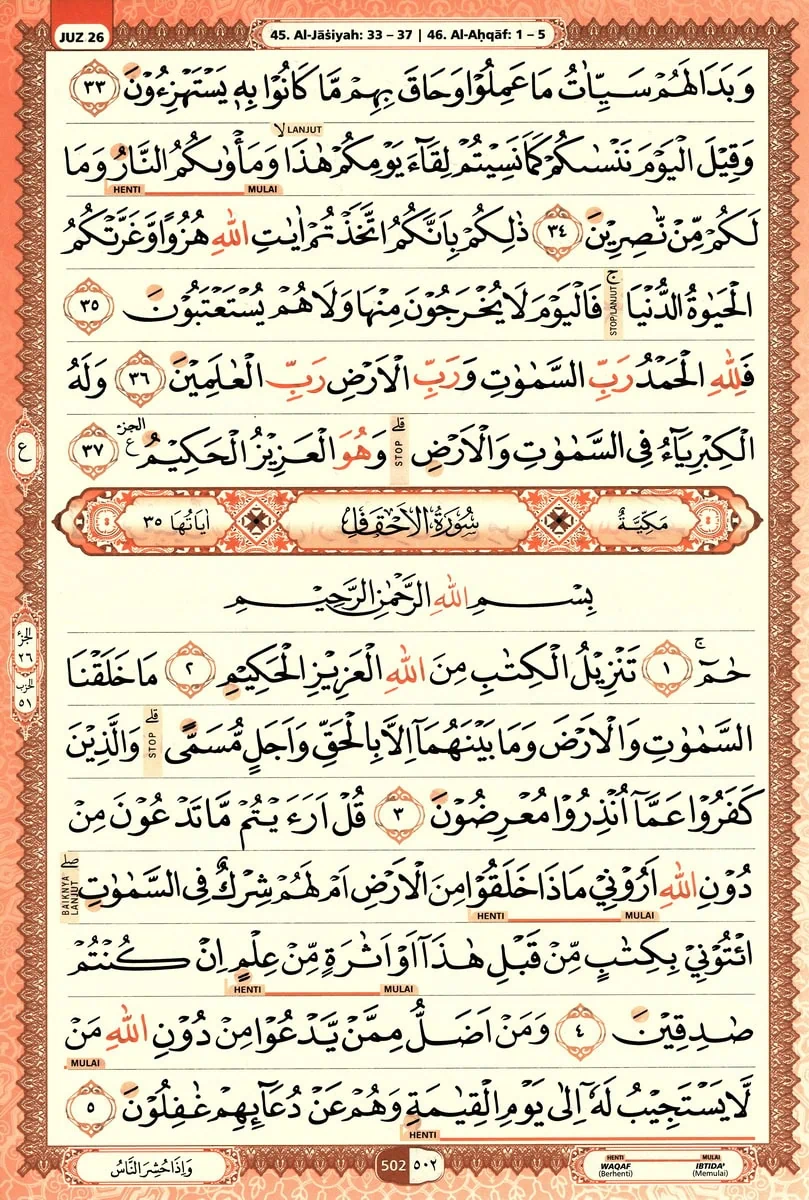 JUZ 26
45. Al-Jāṡiyah: 33 – 37 | 46. Al-Aḥqāf: 1 – 5
وَبَدَا لَهُمْ سَيِّاٰتُ مَا عَمِلُوْا وَحَاقَ بِهِمْ مَّا كَانُوْا بِهٖ يَسْتَهْزِءُوْنَ ٣٣
لا LANJUT
وَقِيْلَ الْيَوْمَ نَنْسٰىكُمْ كَمَا نَسِيْتُمْ لِقَاۤءَ يَوْمِكُمْ هٰذَا وَمَأْوٰىكُمُ النَّارُ وَمَا
HENTI MULAI
لَكُمْ مِّنْ نّٰصِرِيْنَ ٣٤ ذٰلِكُمْ بِاَنَّكُمُ اتَّخَذْتُمْ اٰيٰتِ اللّٰهِ هُزُوًا وَّغَرَّتْكُمُ
الْحَيٰوةُ الدُّنْيَا ج STOP/LANJUT فَالْيَوْمَ لَا يُخْرَجُوْنَ مِنْهَا وَلَا هُمْ يُسْتَعْتَبُوْنَ ٣٥
فَلِلّٰهِ الْحَمْدُ رَبِّ السَّمٰوٰتِ وَرَبِّ الْاَرْضِ رَبِّ الْعٰلَمِيْنَ ٣٦ وَلَهُ
الْكِبْرِيَاۤءُ فِى السَّمٰوٰتِ وَالْاَرْضِ قلے STOP وَهُوَ الْعَزِيْزُ الْحَكِيْمُ ع الجزء ٣٧
ع
مَكِّيَّةٌ سُوْرَةُ الْاَحْقَافِ اٰيَاتُهَا ٣٥
بِسْمِ اللّٰهِ الرَّحْمٰنِ الرَّحِيْمِ
حٰمۤ ج ١ تَنْزِيْلُ الْكِتٰبِ مِنَ اللّٰهِ الْعَزِيْزِ الْحَكِيْمِ ٢ مَا خَلَقْنَا
الجزء ٢٦ الحزب ٥١
السَّمٰوٰتِ وَالْاَرْضَ وَمَا بَيْنَهُمَآ اِلَّا بِالْحَقِّ وَاَجَلٍ مُّسَمًّى قلے STOP وَالَّذِيْنَ
كَفَرُوْا عَمَّآ اُنْذِرُوْا مُعْرِضُوْنَ ٣ قُلْ اَرَءَيْتُمْ مَّا تَدْعُوْنَ مِنْ
دُوْنِ اللّٰهِ اَرُوْنِيْ مَاذَا خَلَقُوْا مِنَ الْاَرْضِ اَمْ لَهُمْ شِرْكٌ فِى السَّمٰوٰتِ صلے BAIKNYA LANJUT
HENTI MULAI
ائْتُوْنِيْ بِكِتٰبٍ مِّنْ قَبْلِ هٰذَآ اَوْ اَثٰرَةٍ مِّنْ عِلْمٍ اِنْ كُنْتُمْ
HENTI MULAI
صٰدِقِيْنَ ٤ وَمَنْ اَضَلُّ مِمَّنْ يَّدْعُوْا مِنْ دُوْنِ اللّٰهِ مَنْ
MULAI
لَّا يَسْتَجِيْبُ لَهٗٓ اِلٰى يَوْمِ الْقِيٰمَةِ وَهُمْ عَنْ دُعَاۤىِٕهِمْ غٰفِلُوْنَ ٥
HENTI
وَاِذَا حُشِرَ النَّاسُ
502 ٥٠٢
HENTI MULAI
WAQAF IBTIDA'
(Berhenti) (Memulai)